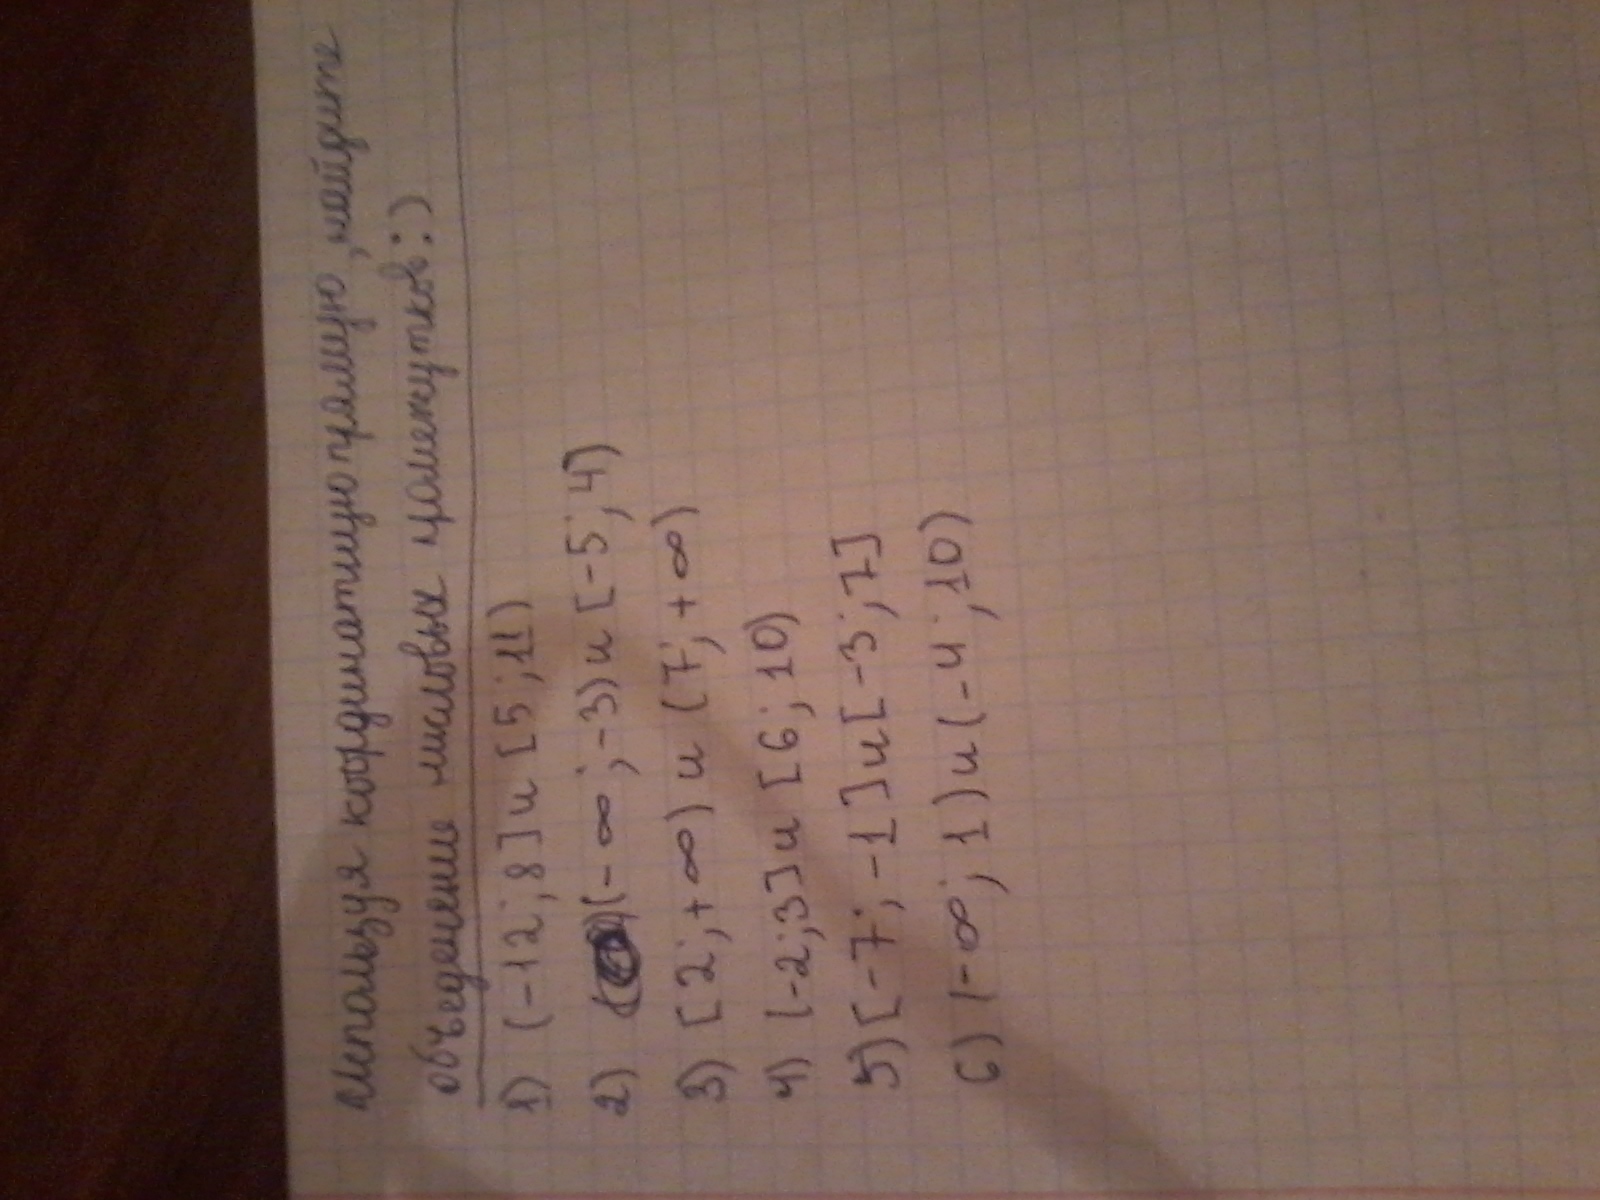 Используя координатную прямую, найдите
объеденение числовых промежутков:)
1) (-12; 8] и [5; 11)
2) (-∞; -3) и [-5; 4)
3) [2; +∞) и (7; +∞)
4) [-2; 3] и [6; 10)
5) [-7; -1] и [-3; 7]
6) (-∞; 1) и (-4; 10)